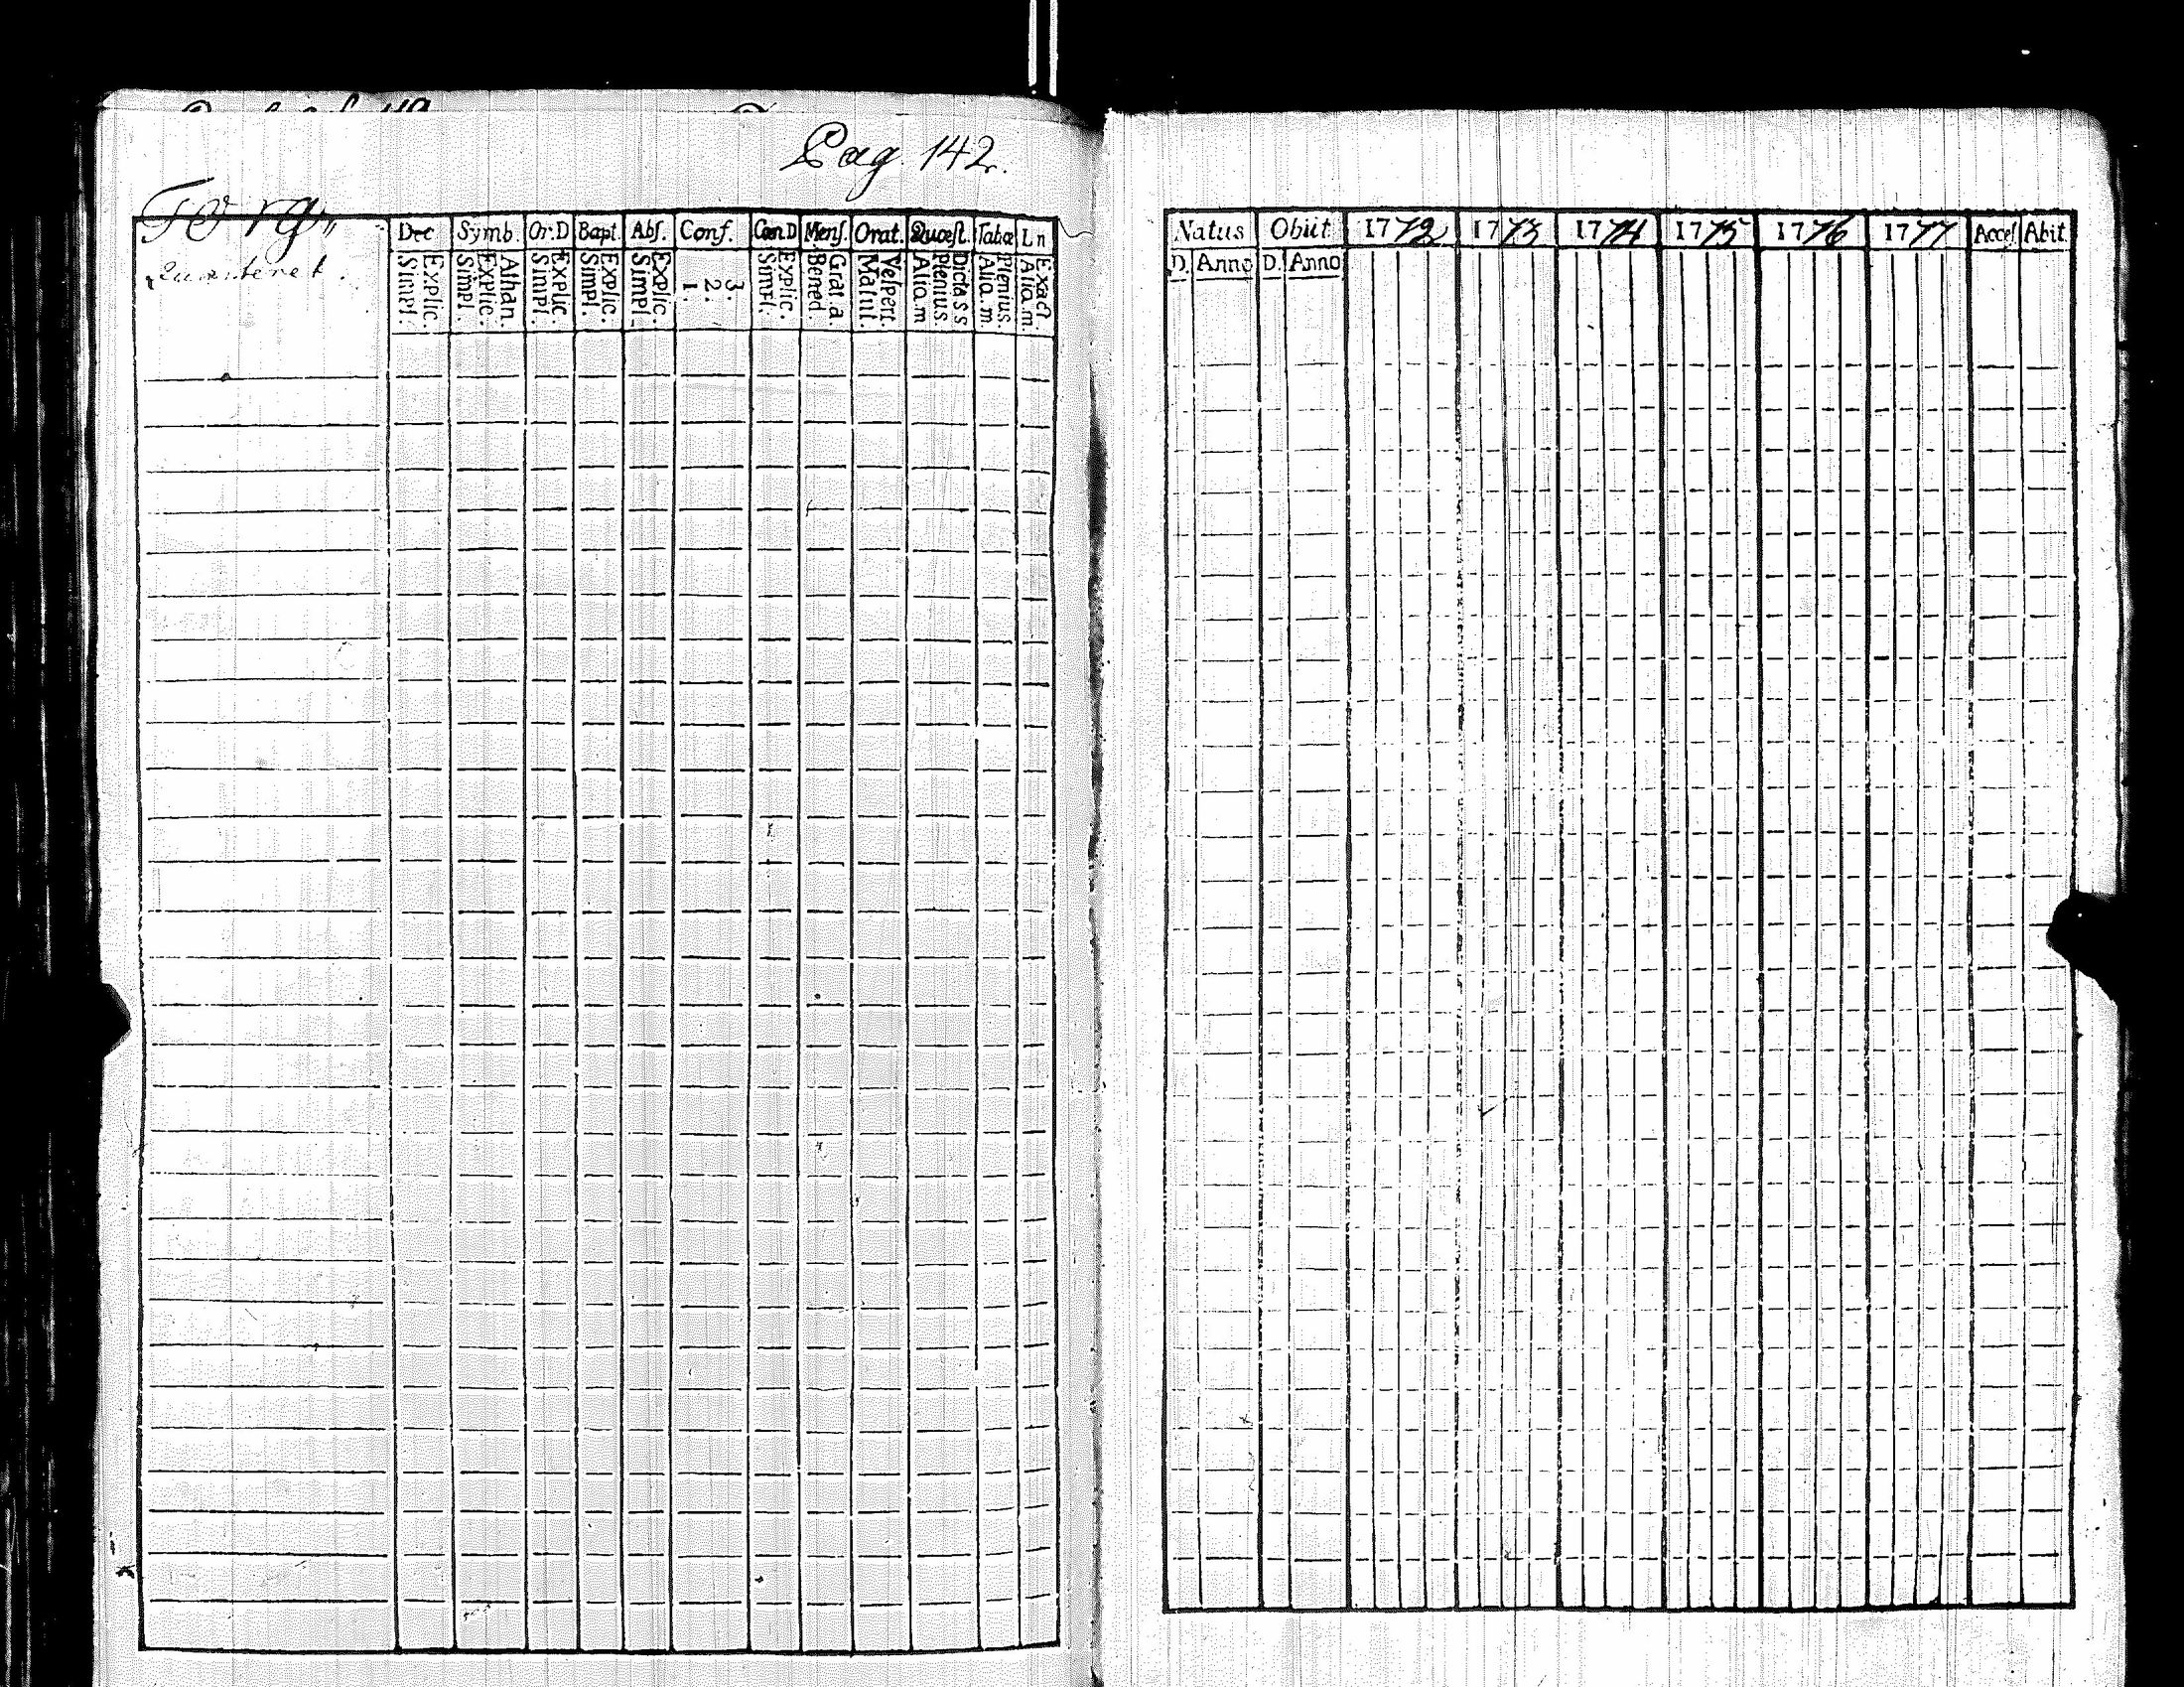 Pag. 142.
Torg,,
Quarteret.
Dec Symb. Or.D Bapt. Abs. Conf. Cœn.D Mens. Orat. Quæst. Tabæ Ln
Explic. Simpl. Athan. Explic. Simpl. Explic. Simpl. Explic. Simpl. Explic. Simpl. 3. 2. 1. Explic. Simpl. Grat. a. Bened. Vespert. Matut. Dicta ss Plenius Alia. m Plenius. Alia. m. Exact. Alia. m.
Natus Obiit 1772 1773 1774 1775 1776 1777 Access Abit
D. Anno D. Anno